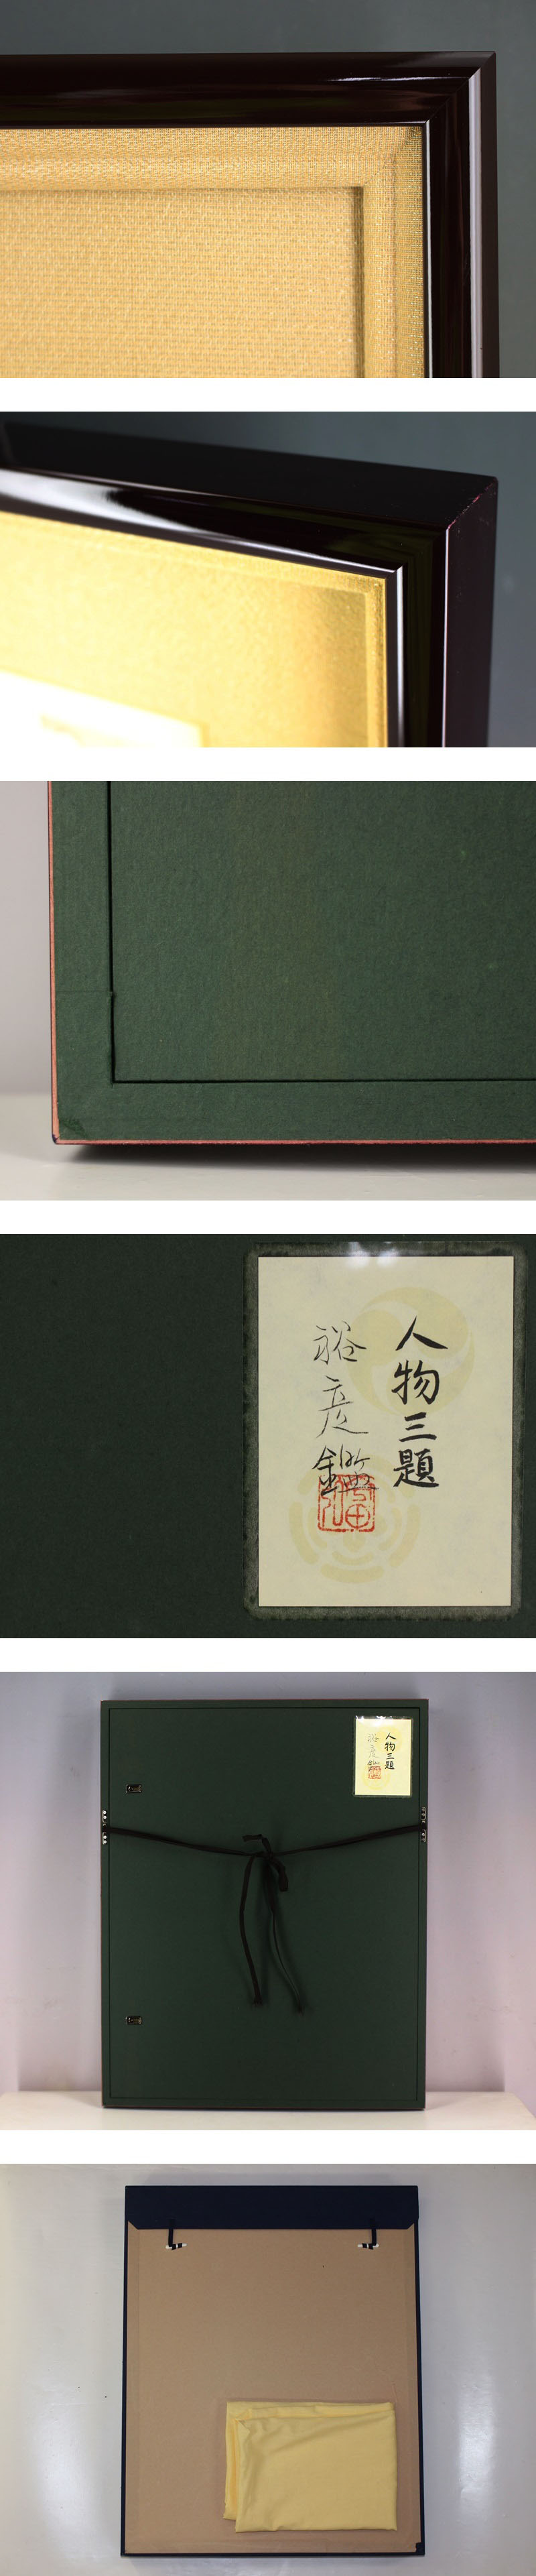 人物三題
裕彦鑑
人物三題
裕彦鑑